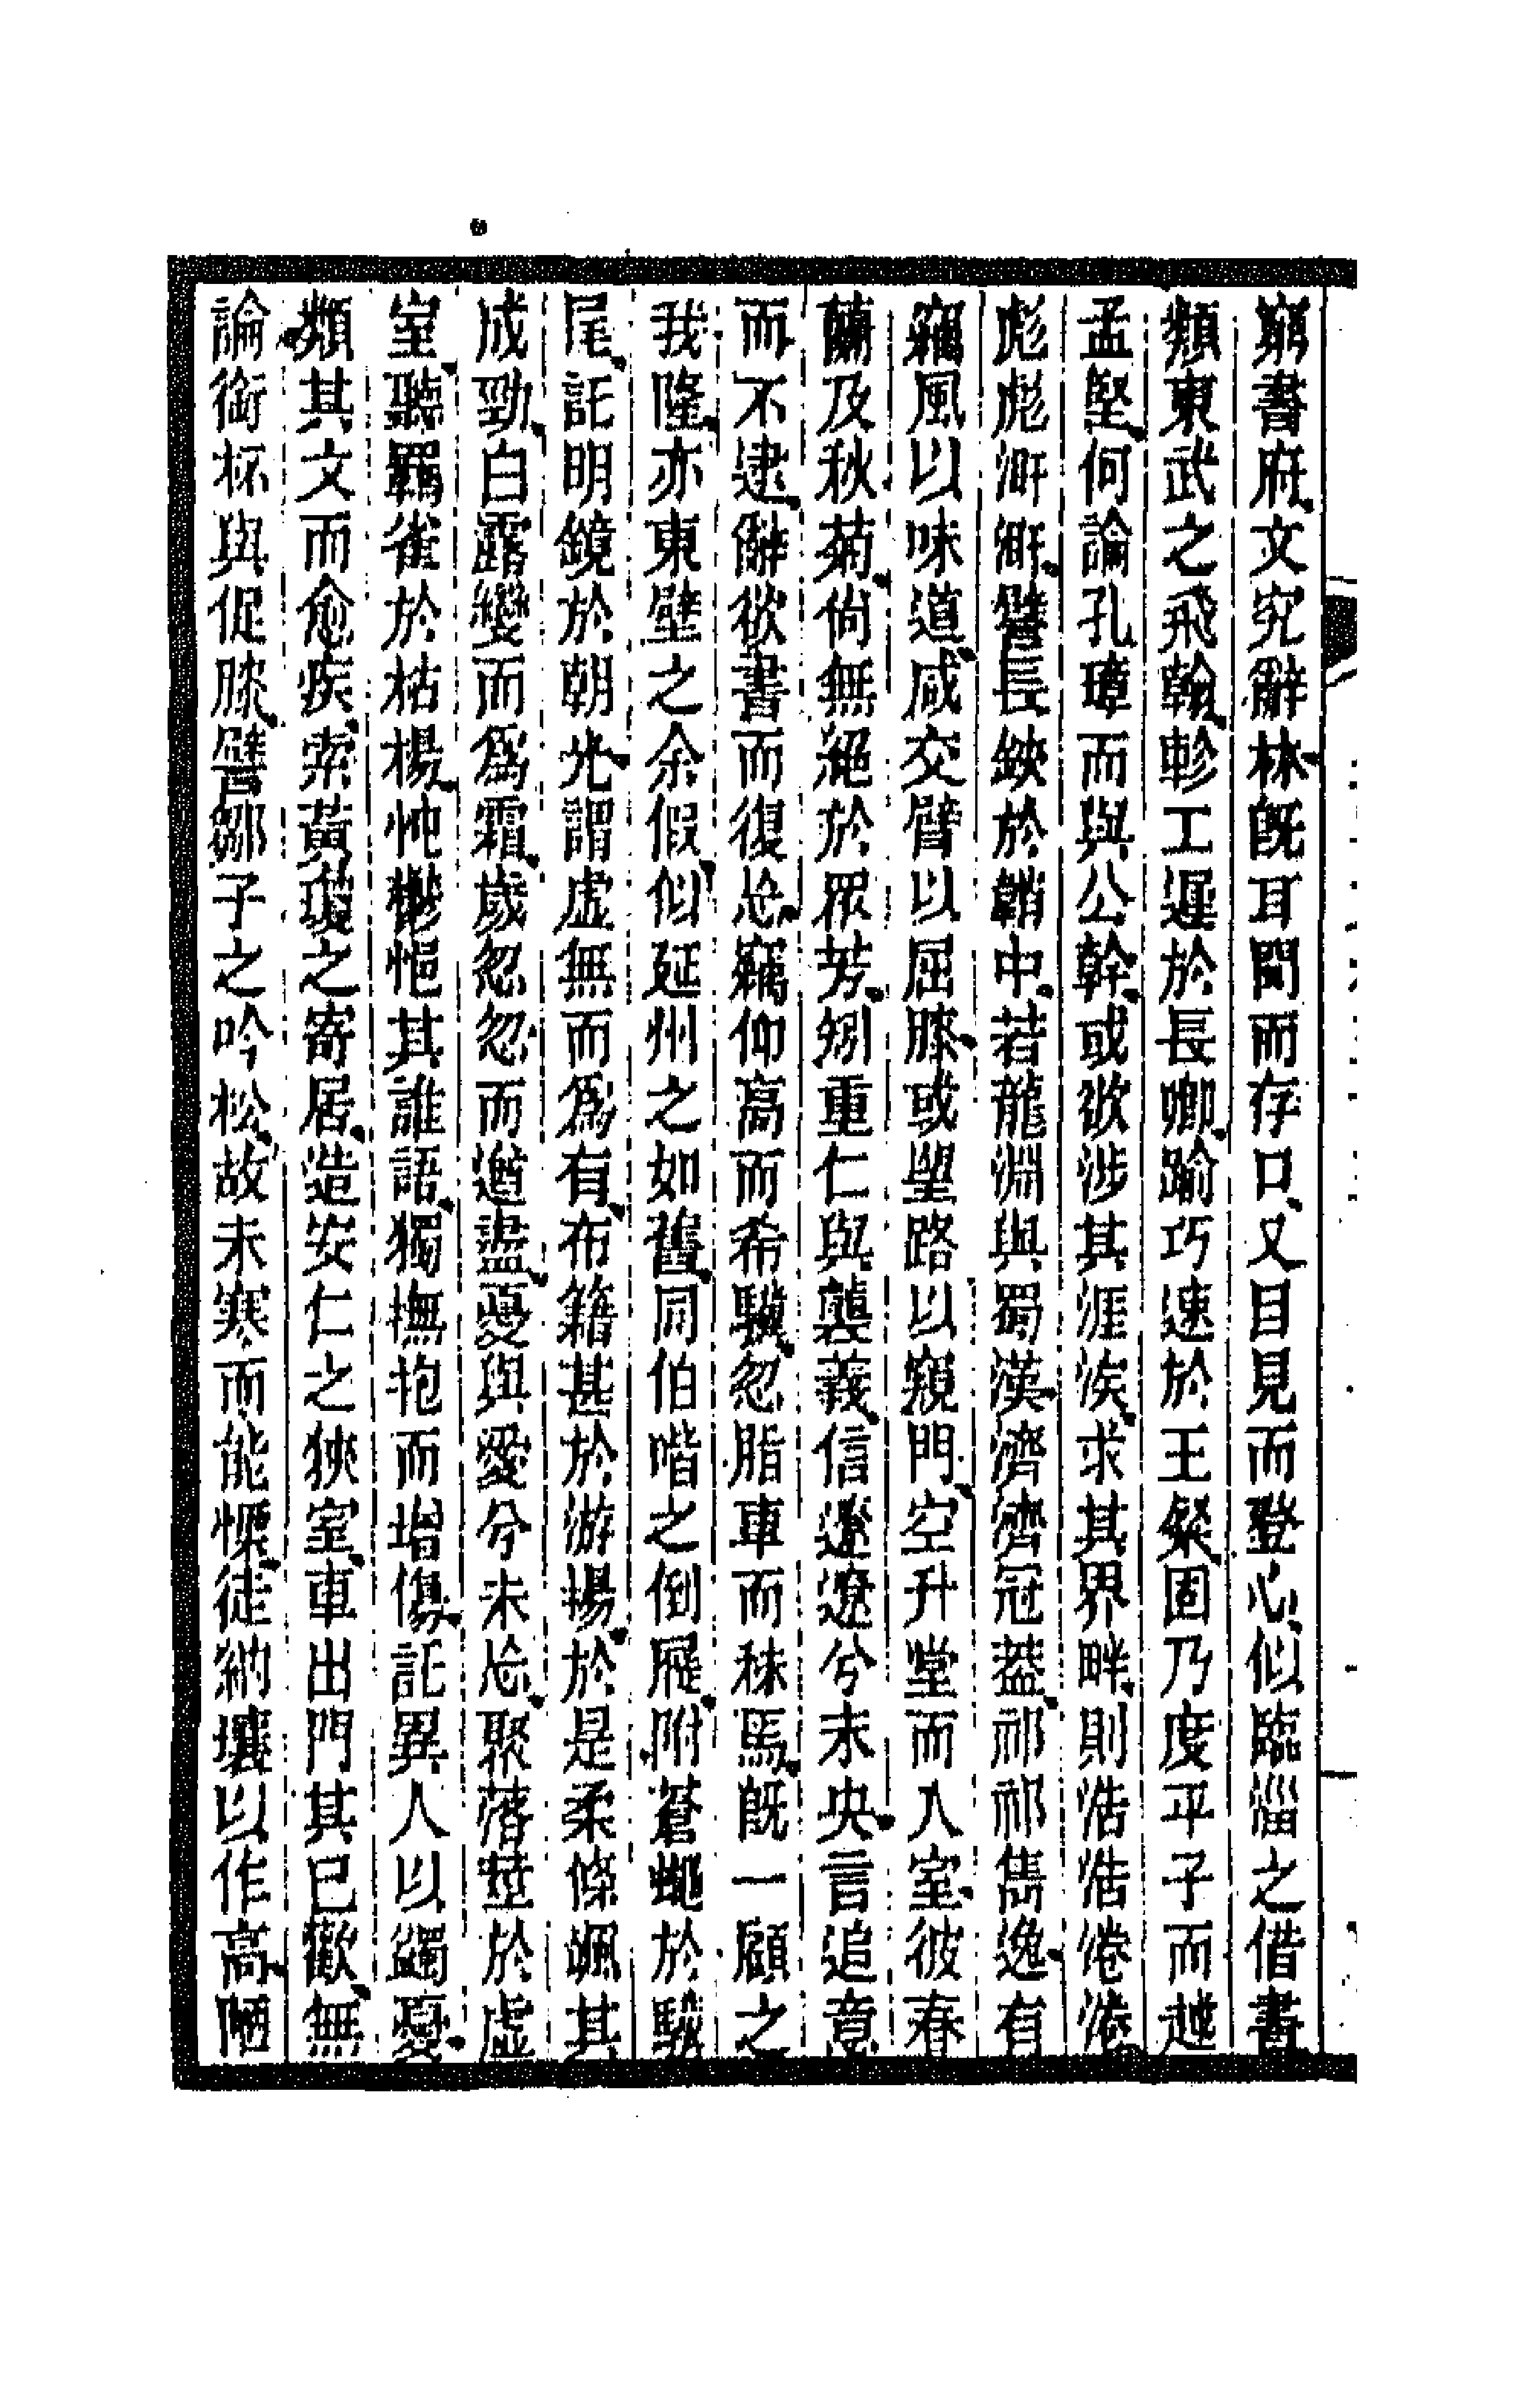 窮書府文究辭林旣耳聞而存口又目見而登心似臨淄之借書
類東武之飛翰軫工遲於長卿踰巧速於王粲固乃度平子而越
孟堅何論孔璋而與公幹或欲涉其涯涘求其界畔則浩浩淃淃
彪彪漷漷譬長鋏於鞘中若龍淵與蜀漢濟濟冠葢祁祁雋逸有
竊風以味道咸交臂以屈膝或望路以窺門空升堂而入室彼春
蘭及秋菊尙無絕於眾芳矧重仁與襲義信遼遼兮未央言追意
而不逮辭欲書而復忘竊仰高而希驥忽脂車而秣馬旣一顧之
我隆亦東壁之余假似延州之如舊同伯喈之倒屣附蒼蠅於驥
尾託明鏡於朝光謂虛無而爲有布籍甚於游揚於是柔條颯其
成勁白露變而爲霜歲忽忽而遒盡憂與愛兮未忘聚落莖於虛
室聽羈雀於枯楊忳鬱悒其誰語獨撫抱而增傷託異人以蠲憂
類其文而愈疾索黃瓊之寄居造安仁之狹室車出門其已歡無
論銜杯與促膝譬鄒子之吟松故未寒而能慄徒納壤以作高陋